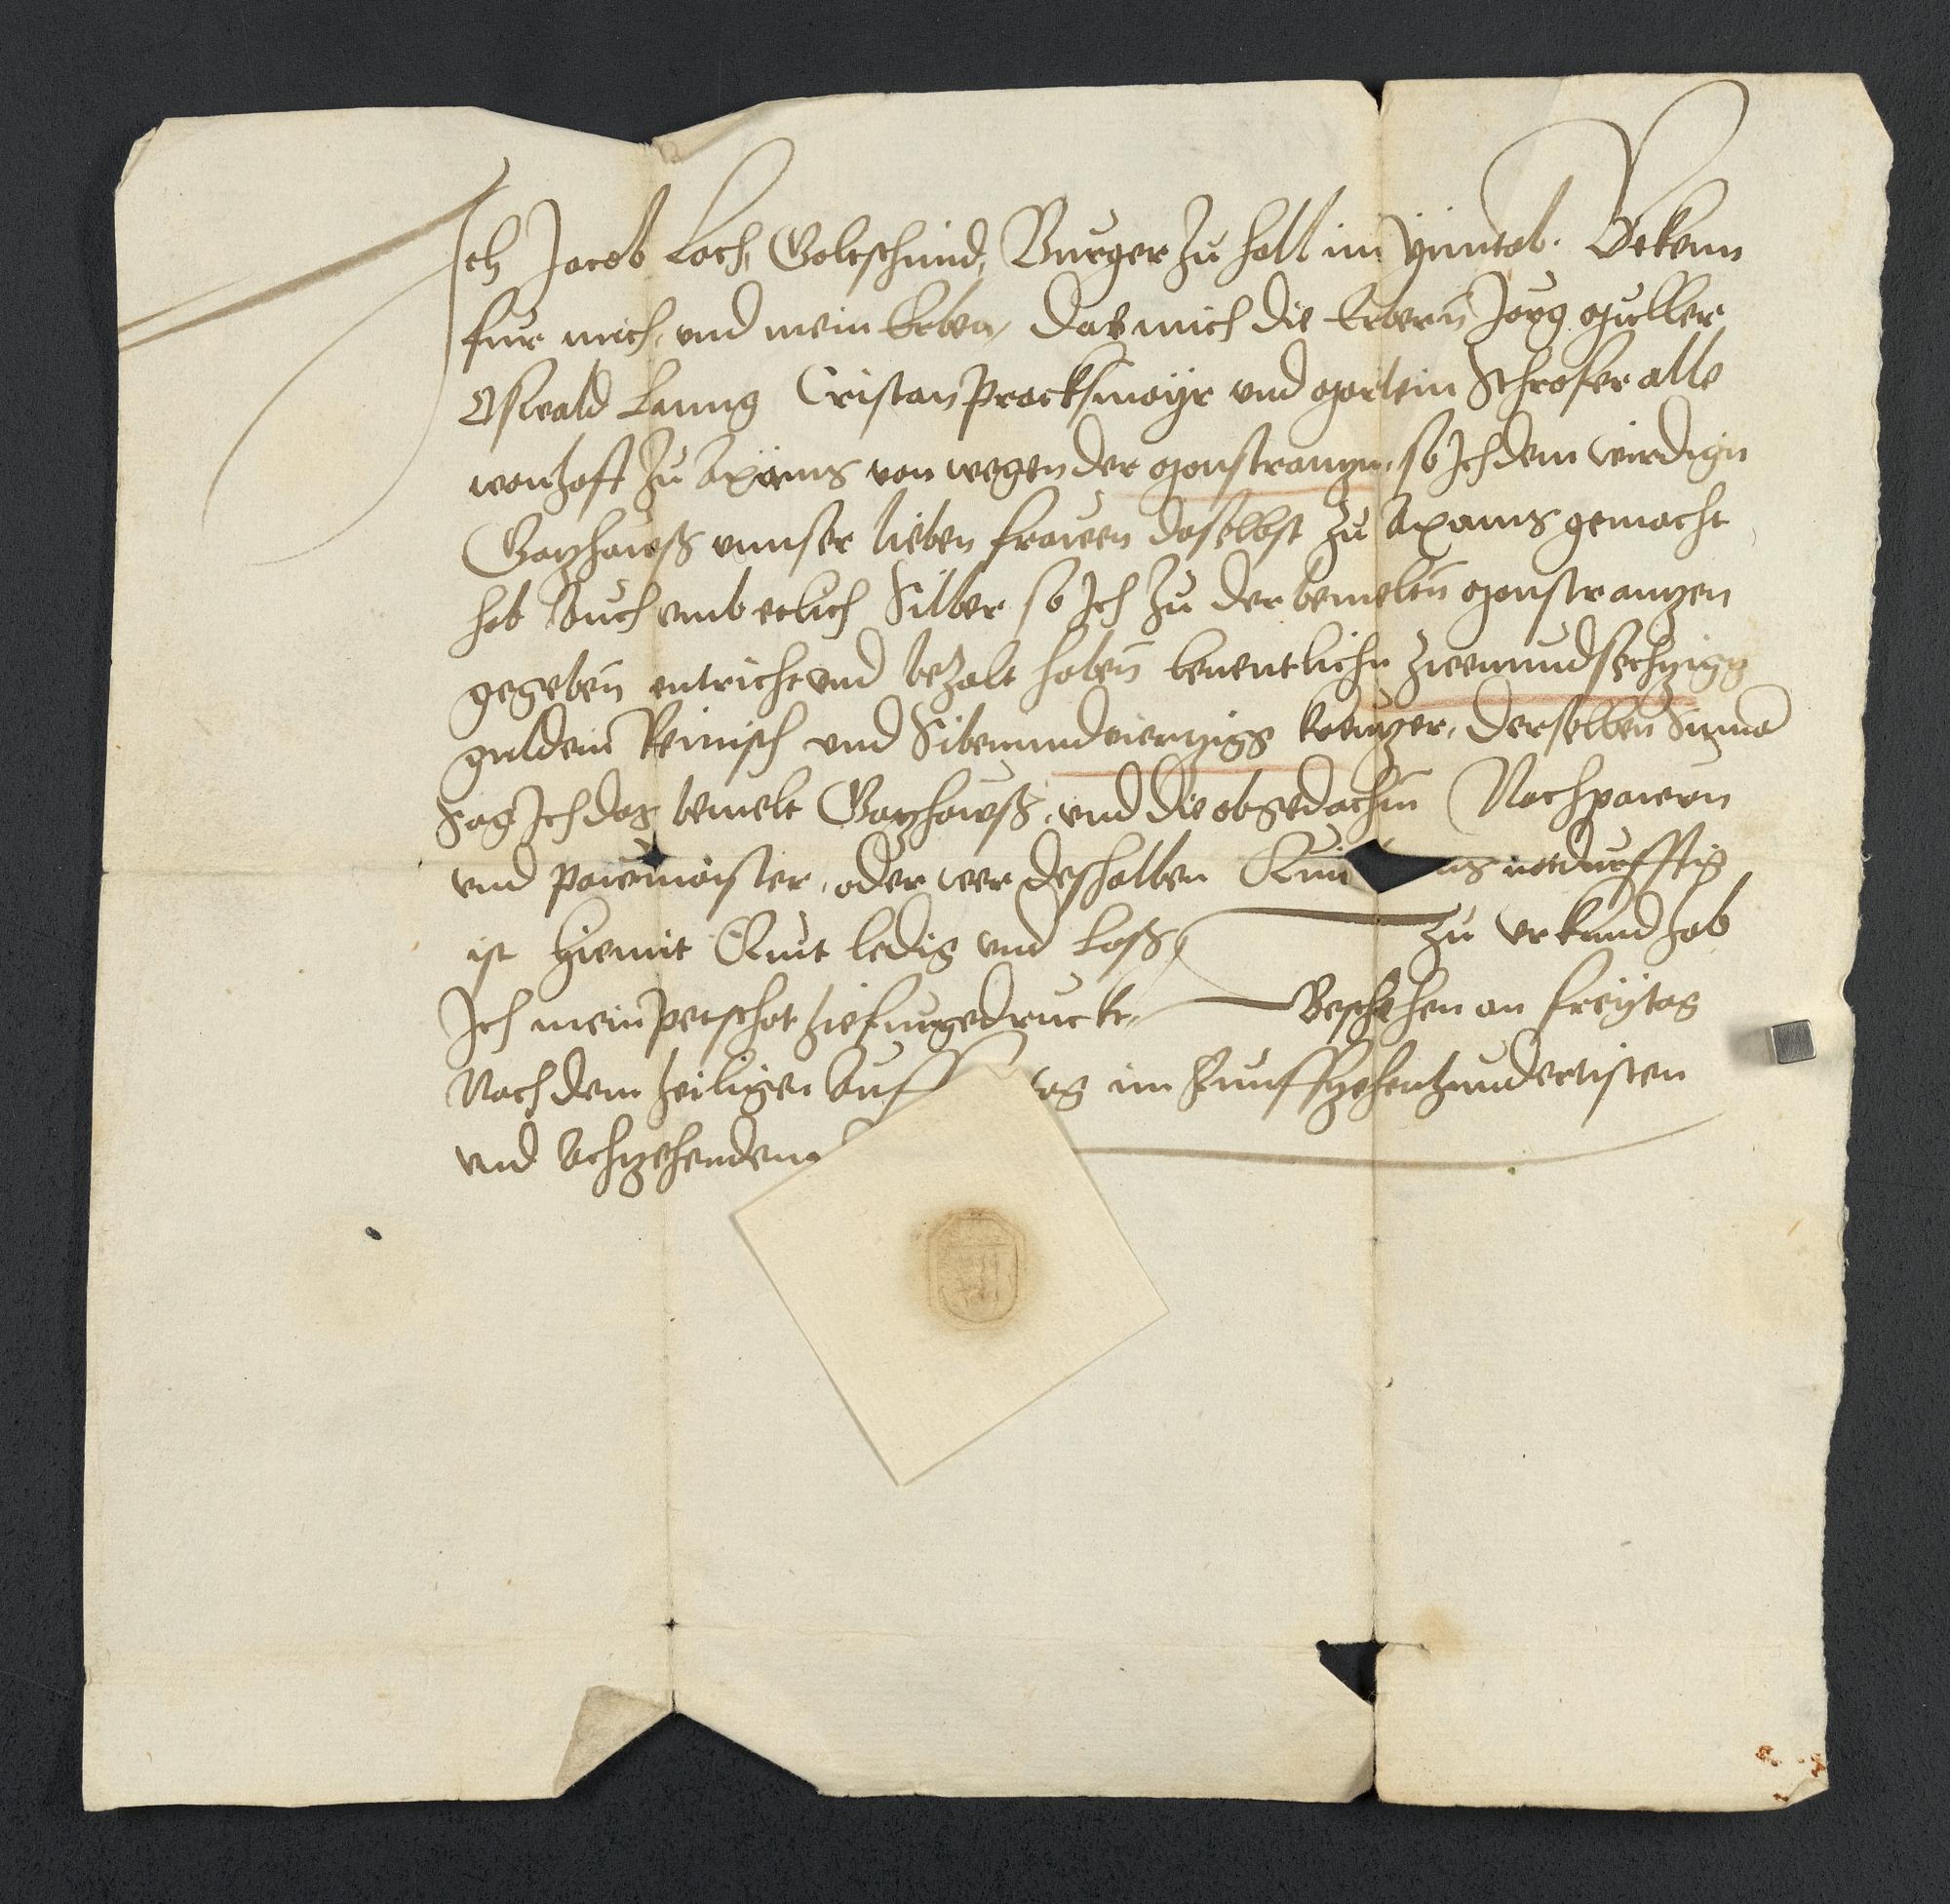 Ich Jacob Loch, Goltschmid, Burger zu Hall im Ynntal. Bekenn
fur mich, und mein Erben, das mich die Erbern Jorg Muller
Oswald Lanng Cristan Pracksmayr und Martein Schrofer alle
wonhaft zu Axams von wegen der Monstranzn, so Ich dem wirdign
Gotzhawß unnser lieben frawen daselbst zu Axams gemacht
hab Auch umb etlich Silber so Ich zu der bemeltn Monstranntzen
gegeben entricht und bezalt haben benentlichn zwenundsechtzigg
guldein Reinisch und Sibenundviertzigg kreutzer, derselben Suma
Sag Ich das bemelt Gotzhawß, und die obgedachtn Nachpawrn
und pawmaister, oder wer deshalben Qui ns notdurfftig
ist hiemit Quit ledig und Loß, Zu urkund hab
Ich mein petschat hiefurgedruckt, Beschehen an freytag
Nach dem heiligen Auff tag im Funffzehenhundertisten
und Achtzehenden